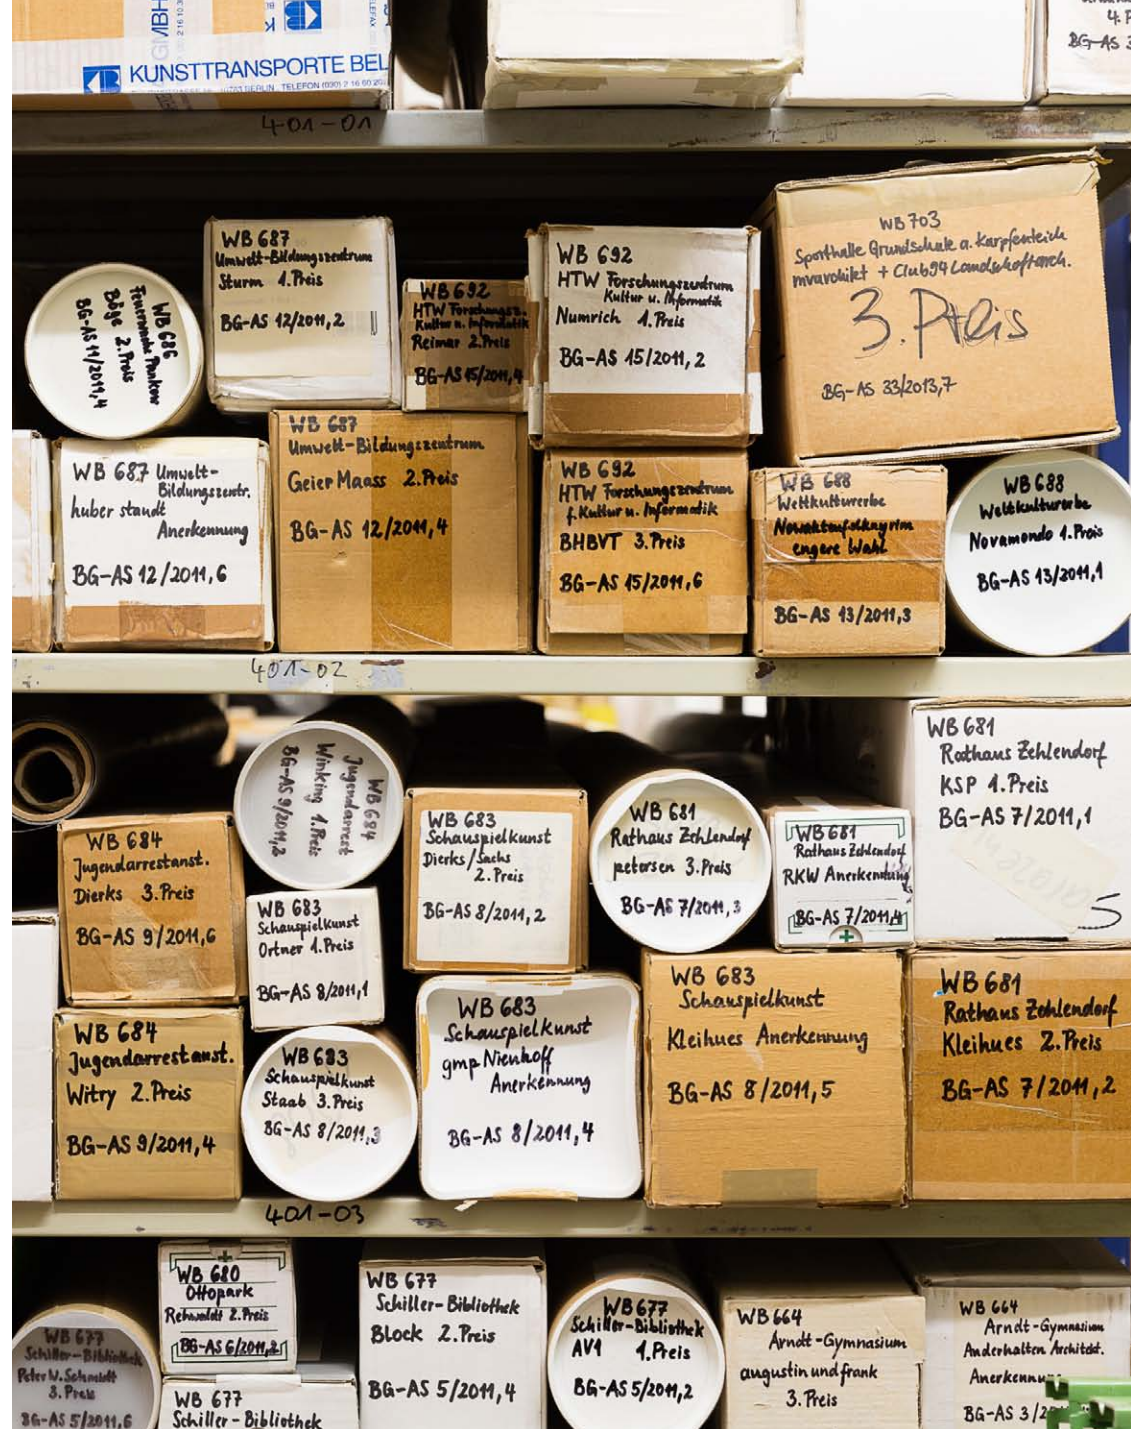 GMBH
KUNSTTRANSPORTE BEL
10785 BERLIN TELEFON (030) 2 16 60 20
4. P
BG-AS 3
401-01
WB 686
Feuerwache Pankow
Böge 2. Preis
BG-AS 11/2011, 4
WB 687
Umwelt-Bildungszentrum
Sturm 1. Preis
BG-AS 12/2011, 2
WB 692
HTW Forschungsz.
Kultur u. Informatik
Reimar 2. Preis
BG-AS 15/2011, 4
WB 692
HTW Forschungszentrum
Kultur u. Informatik
Numrich 1. Preis
BG-AS 15/2011, 2
WB 703
Sporthalle Grundschule a. Karpfenteich
mvarchitekt + Club94 Landschaftsarch.
3. Preis
BG-AS 33/2013, 7
WB 687 Umwelt-
Bildungszentr.
huber staudt
Anerkennung
BG-AS 12/2011, 6
WB 687
Umwelt-Bildungszentrum
Geier Maass 2. Preis
BG-AS 12/2011, 4
WB 692
HTW Forschungszentrum
f. Kultur u. Informatik
BHBVT 3. Preis
BG-AS 15/2011, 6
WB 688
Weltkulturerbe
engere Wahl
BG-AS 13/2011, 3
WB 688
Weltkulturerbe
Novamondo 1. Preis
BG-AS 13/2011, 1
401-02
WB 684
Jugendarrest
Winking 1. Preis
BG-AS 9/2011, 2
WB 684
Jugendarrestanst.
Dierks 3. Preis
BG-AS 9/2011, 6
WB 683
Schauspielkunst
Ortner 1. Preis
BG-AS 8/2011, 1
WB 683
Schauspielkunst
Dierks/Sachs
2. Preis
BG-AS 8/2011, 2
WB 681
Rathaus Zehlendorf
petersen 3. Preis
BG-AS 7/2011, 3
WB 681
Rathaus Zehlendorf
RKW Anerkennung
BG-AS 7/2011, 4
WB 681
Rathaus Zehlendorf
KSP 1. Preis
BG-AS 7/2011, 1
5
WB 684
Jugendarrestanst.
Witry 2. Preis
BG-AS 9/2011, 4
WB 683
Schauspielkunst
Staab 3. Preis
BG-AS 8/2011, 3
WB 683
Schauspielkunst
gmp Nienhoff
Anerkennung
BG-AS 8/2011, 4
WB 683
Schauspielkunst
Kleihues Anerkennung
BG-AS 8/2011, 5
WB 681
Rathaus Zehlendorf
Kleihues 2. Preis
BG-AS 7/2011, 2
401-03
WB 677
Schiller-Bibliothek
Peter W. Schmidt
3. Preis
BG-AS 5/2011, 6
WB 680
Ottopark
Rehwaldt 2. Preis
BG-AS 6/2011, 2
WB 677
Schiller-Bibliothek
WB 677
Schiller-Bibliothek
Block 2. Preis
BG-AS 5/2011, 4
WB 677
Schiller-Bibliothek
AV1 1. Preis
BG-AS 5/2011, 2
WB 664
Arndt-Gymnasium
augustin und frank
3. Preis
WB 664
Arndt-Gymnasium
Anderhalten Architekt.
Anerkennu
BG-AS 3/2